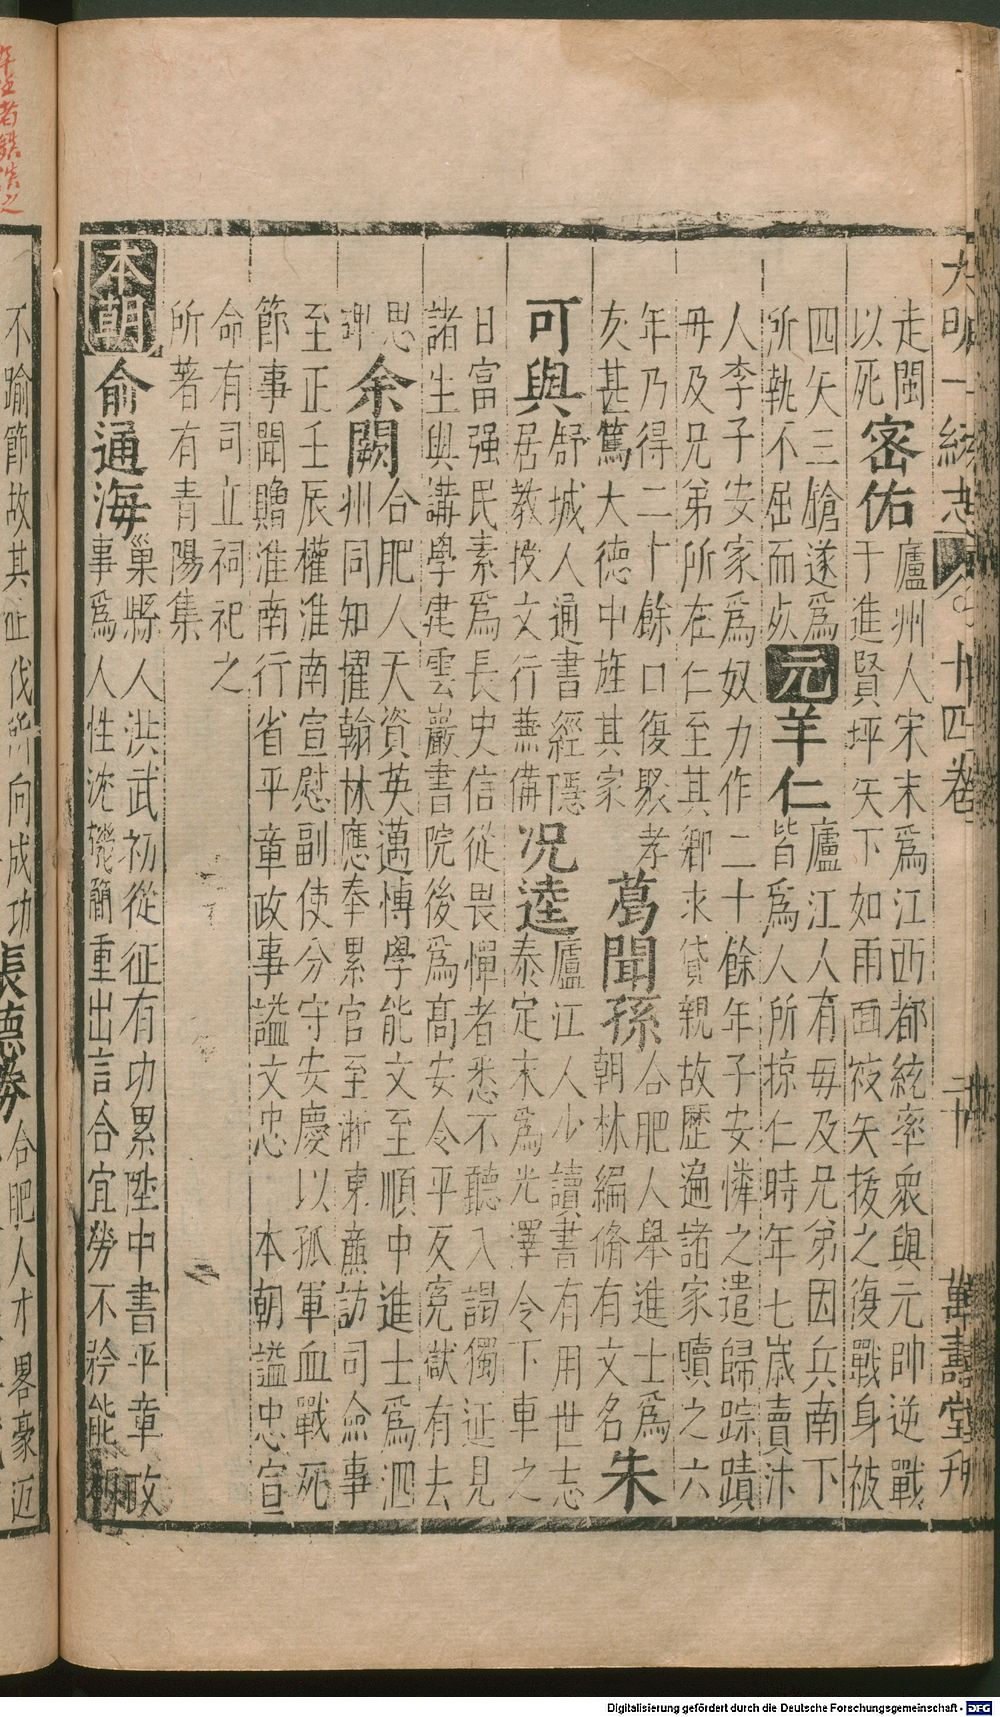 大明一統志 十四卷 二十 萬壽堂刋
走閩
以死
密佑
廬州人宋末爲江西都統率衆與元帥逆戰
于進賢坪矢下如雨面被矢拔之復戰身被
四矢三鎗遂爲
所執不屈而死
元羊仁
廬江人有母及兄弟因兵南下
皆爲人所掠仁時年七歲賣汴
人李子安家爲奴力作二十餘年子安憐之遣歸踪蹟
母及兄弟所在仁至其鄉求貸親故歷遍諸家贖之六
年乃得二十餘口復聚孝
友甚篤大德中旌其家
葛聞孫
合肥人舉進士爲
翰林編脩有文名
朱
可與
舒城人通書經隱
居教授文行兼備
况逵
廬江人少讀書有用世志
泰定末爲光澤令下車之
日富强民素爲長史信從畏憚者悉不聽入謁獨延見
諸生與講學建雲巖書院後爲高安令平反寃獄有去
思
碑
余闕
合肥人天資英邁愽學能文至順中進士爲泗
州同知擢翰林應奉累官至淛東亷訪司僉事
至正壬辰權淮南宣慰副使分守安慶以孤軍血戰死
節事聞贈淮南行省平章政事謚文忠 本朝謚忠宣
命有司立祠祀之
所著有青陽集
本朝俞通海
巢縣人洪武初從征有功累陞中書平章政
事爲人性沈機簡重出言合宜勞不矜能
不踰節故其征伐所向成功
張德勝
合肥人才畧豪迈
Digitalisierung gefördert durch die Deutsche Forschungsgemeinschaft - DFG